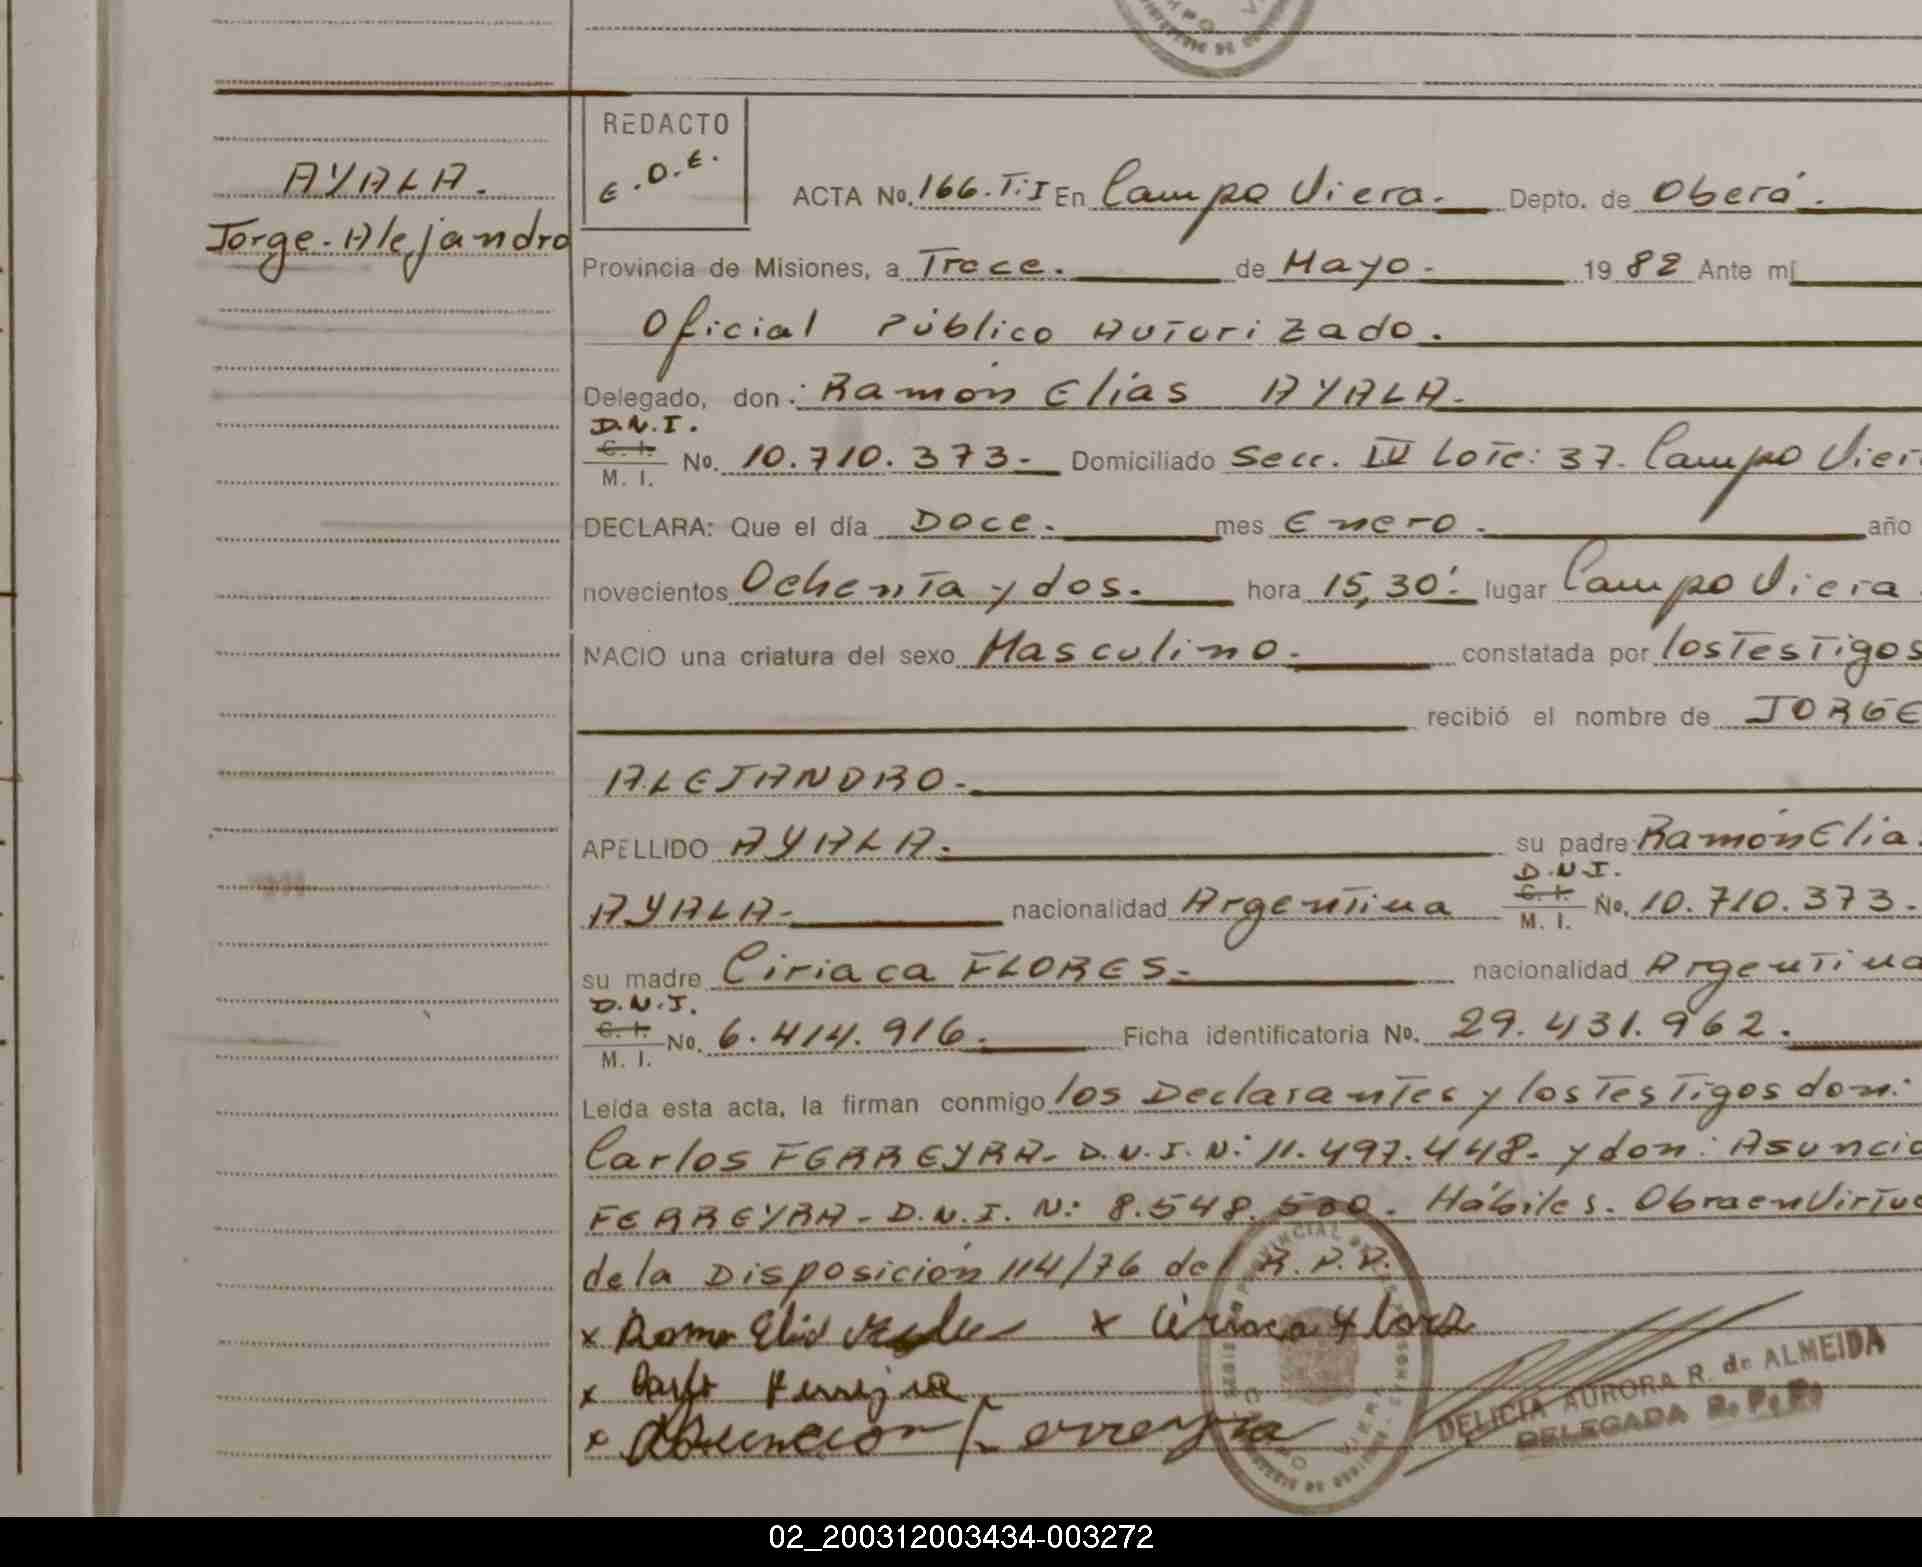 REDACTO
E.O.E.
AYALA.
Jorge-Alejandro
ACTA No. 166.T.I En Campo Viera. Depto. de Oberá.
Provincia de Misiones, a Trece. de Mayo. 1982 Ante mí
Oficial Público Autorizado.
Delegado, don: Ramón Elias AYALA.
D.N.I.
C. I. No. 10.710.373- Domiciliado Secc. IV Lote: 37. Campo Vier
M. I.
DECLARA: Que el día Doce. mes Enero. año
novecientos Ochenta y dos. hora 15,30'. lugar Campo Viera.
NACIO una criatura del sexo Masculino. constatada por los Testigos
recibió el nombre de JORGE
ALEJANDRO.
APELLIDO AYALA. su padre Ramón Elia
D.N.I.
AYALA- nacionalidad Argentina C. I. No. 10.710.373.
M. I.
su madre Ciriaca FLORES- nacionalidad Argentina
D.N.I.
C. I. No. 6.414.916. Ficha identificatoria No. 29.431.962.
M. I.
Leída esta acta, la firman conmigo los Declarantes y los Testigos don:
Carlos FERREYRA- D.N.I. N: 11.497.448- y don: Asuncio
FERREYRA- D.N.I. N: 8.548.500. Hábiles. Obra en Virtud
de la Disposición 114/76 del R.P.P.
x x Ciriaca Flores
x
x Asuncion Ferreyra
DELICIA AURORA R. de ALMEIDA
DELEGADA R. P. P.
02_200312003434-003272